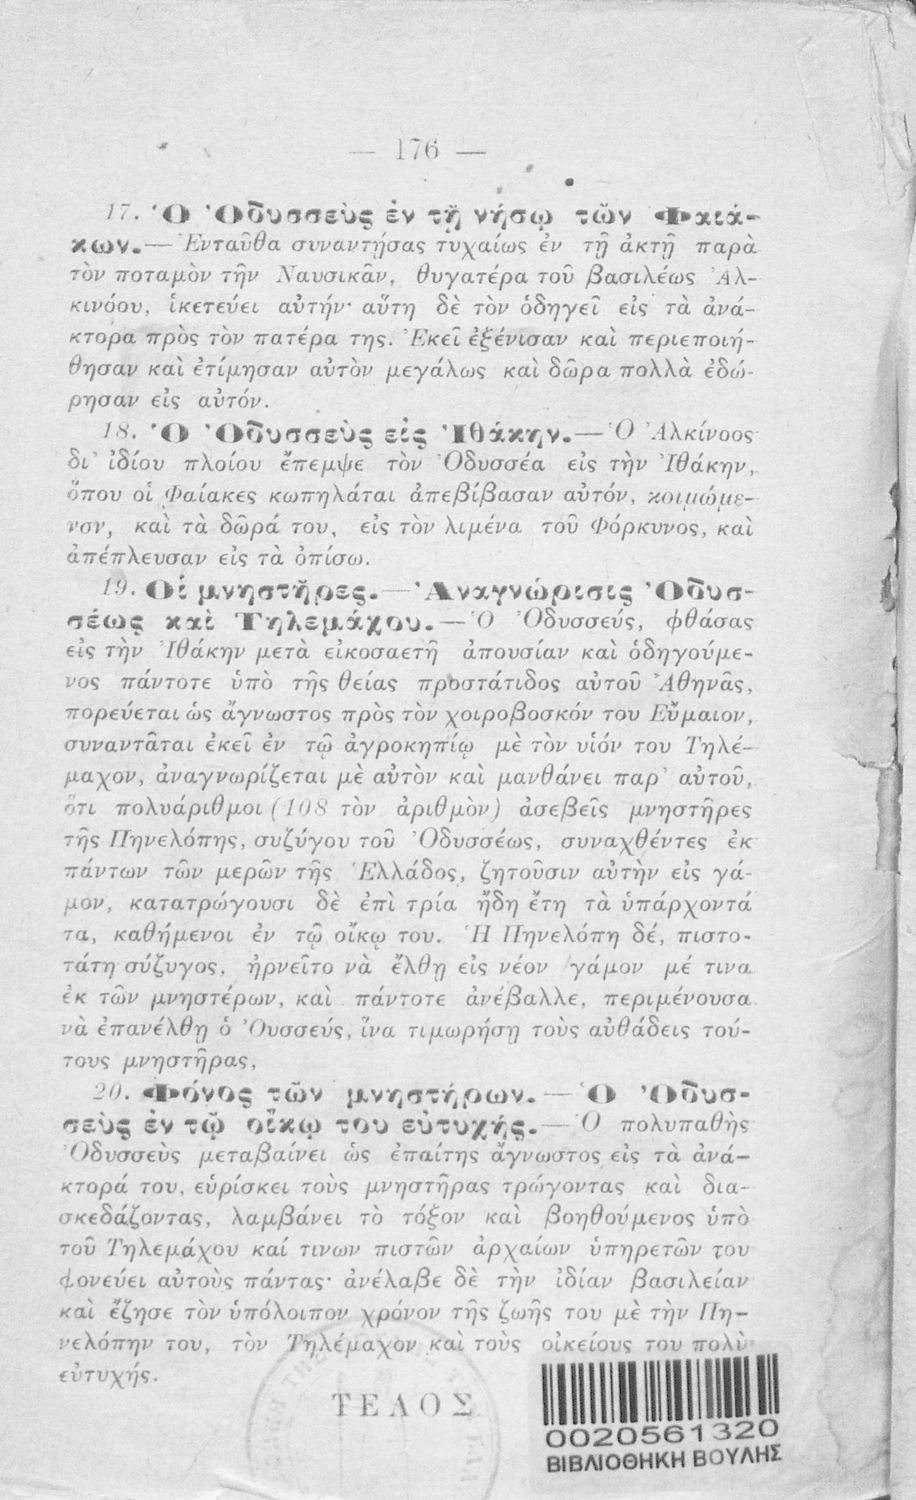 — 176 —
17. Ὁ Ὀδυσσεὺς ἐν τῇ νήσῳ τῶν Φαιά-
κων.— Ἐνταῦθα συναντήσας τυχαίως ἐν τῇ ἀκτῇ παρὰ
τὸν ποταμὸν τὴν Ναυσικᾶν, θυγατέρα τοῦ βασιλέως Ἀλ-
κινόου, ἱκετεύει αὐτήν· αὕτη δὲ τὸν ὁδηγεῖ εἰς τὰ ἀνά-
κτορα πρὸς τὸν πατέρα της. Ἐκεῖ ἐξένισαν καὶ περιεποιή-
θησαν καὶ ἐτίμησαν αὐτὸν μεγάλως καὶ δῶρα πολλὰ ἐδώ-
ρησαν εἰς αὐτόν.
18. Ὁ Ὀδυσσεὺς εἰς Ἰθάκην.— Ὁ Ἀλκίνοος
δι' ἰδίου πλοίου ἔπεμψε τὸν Ὀδυσσέα εἰς τὴν Ἰθάκην,
ὅπου οἱ Φαίακες κωπηλάται ἀπεβίβασαν αὐτόν, κοιμώμε-
νον, καὶ τὰ δῶρά του, εἰς τὸν λιμένα τοῦ Φόρκυνος, καὶ
ἀπέπλευσαν εἰς τὰ ὀπίσω.
19. Οἱ μνηστῆρες.— Ἀναγνώρισις Ὀδυσ-
σέως καὶ Τηλεμάχου.— Ὁ Ὀδυσσεύς, φθάσας
εἰς τὴν Ἰθάκην μετὰ εἰκοσαετῆ ἀπουσίαν καὶ ὁδηγούμε-
νος πάντοτε ὑπὸ τῆς θείας προστάτιδος αὐτοῦ Ἀθηνᾶς,
πορεύεται ὡς ἄγνωστος πρὸς τὸν χοιροβοσκόν του Εὔμαιον,
συναντᾶται ἐκεῖ ἐν τῷ ἀγροκηπίῳ μὲ τὸν υἱόν του Τηλέ-
μαχον, ἀναγνωρίζεται μὲ αὐτὸν καὶ μανθάνει παρ' αὐτοῦ,
ὅτι πολυάριθμοι (108 τὸν ἀριθμὸν) ἀσεβεῖς μνηστῆρες
τῆς Πηνελόπης, συζύγου τοῦ Ὀδυσσέως, συναχθέντες ἐκ
πάντων τῶν μερῶν τῆς Ἑλλάδος, ζητοῦσιν αὐτὴν εἰς γά-
μον, κατατρώγουσι δὲ ἐπὶ τρία ἤδη ἔτη τὰ ὑπάρχοντά
τα, καθήμενοι ἐν τῷ οἴκῳ του. Ἡ Πηνελόπη δέ, πιστο-
τάτη σύζυγος, ἠρνεῖτο νὰ ἔλθῃ εἰς νέον γάμον μέ τινα
ἐκ τῶν μνηστέρων, καὶ πάντοτε ἀνέβαλλε, περιμένουσα
νὰ ἐπανέλθῃ ὁ Ὀυσσεύς, ἵνα τιμωρήσῃ τοὺς αὐθάδεις τού-
τους μνηστῆρας,
20. Φόνος τῶν μνηστήρων.— Ὁ Ὀδυσ-
σεὺς ἐν τῷ οἴκῳ του εὐτυχής.— Ὁ πολυπαθὴς
Ὀδυσσεὺς μεταβαίνει ὡς ἐπαίτης ἄγνωστος εἰς τὰ ἀνά-
κτορά του, εὑρίσκει τοὺς μνηστῆρας τρώγοντας καὶ δια-
σκεδάζοντας, λαμβάνει τὸ τόξον καὶ βοηθούμενος ὑπὸ
τοῦ Τηλεμάχου καί τινων πιστῶν ἀρχαίων ὑπηρετῶν του
φονεύει αὐτοὺς πάντας· ἀνέλαβε δὲ τὴν ἰδίαν βασιλείαν
καὶ ἔζησε τὸν ὑπόλοιπον χρόνον τῆς ζωῆς του μὲ τὴν Πη-
νελόπην του, τὸν Τηλέμαχον καὶ τοὺς οἰκείους του πολὺ
εὐτυχής.
ΤΕΛΟΣ
0020561320
ΒΙΒΛΙΟΘΗΚΗ ΒΟΥΛΗΣ